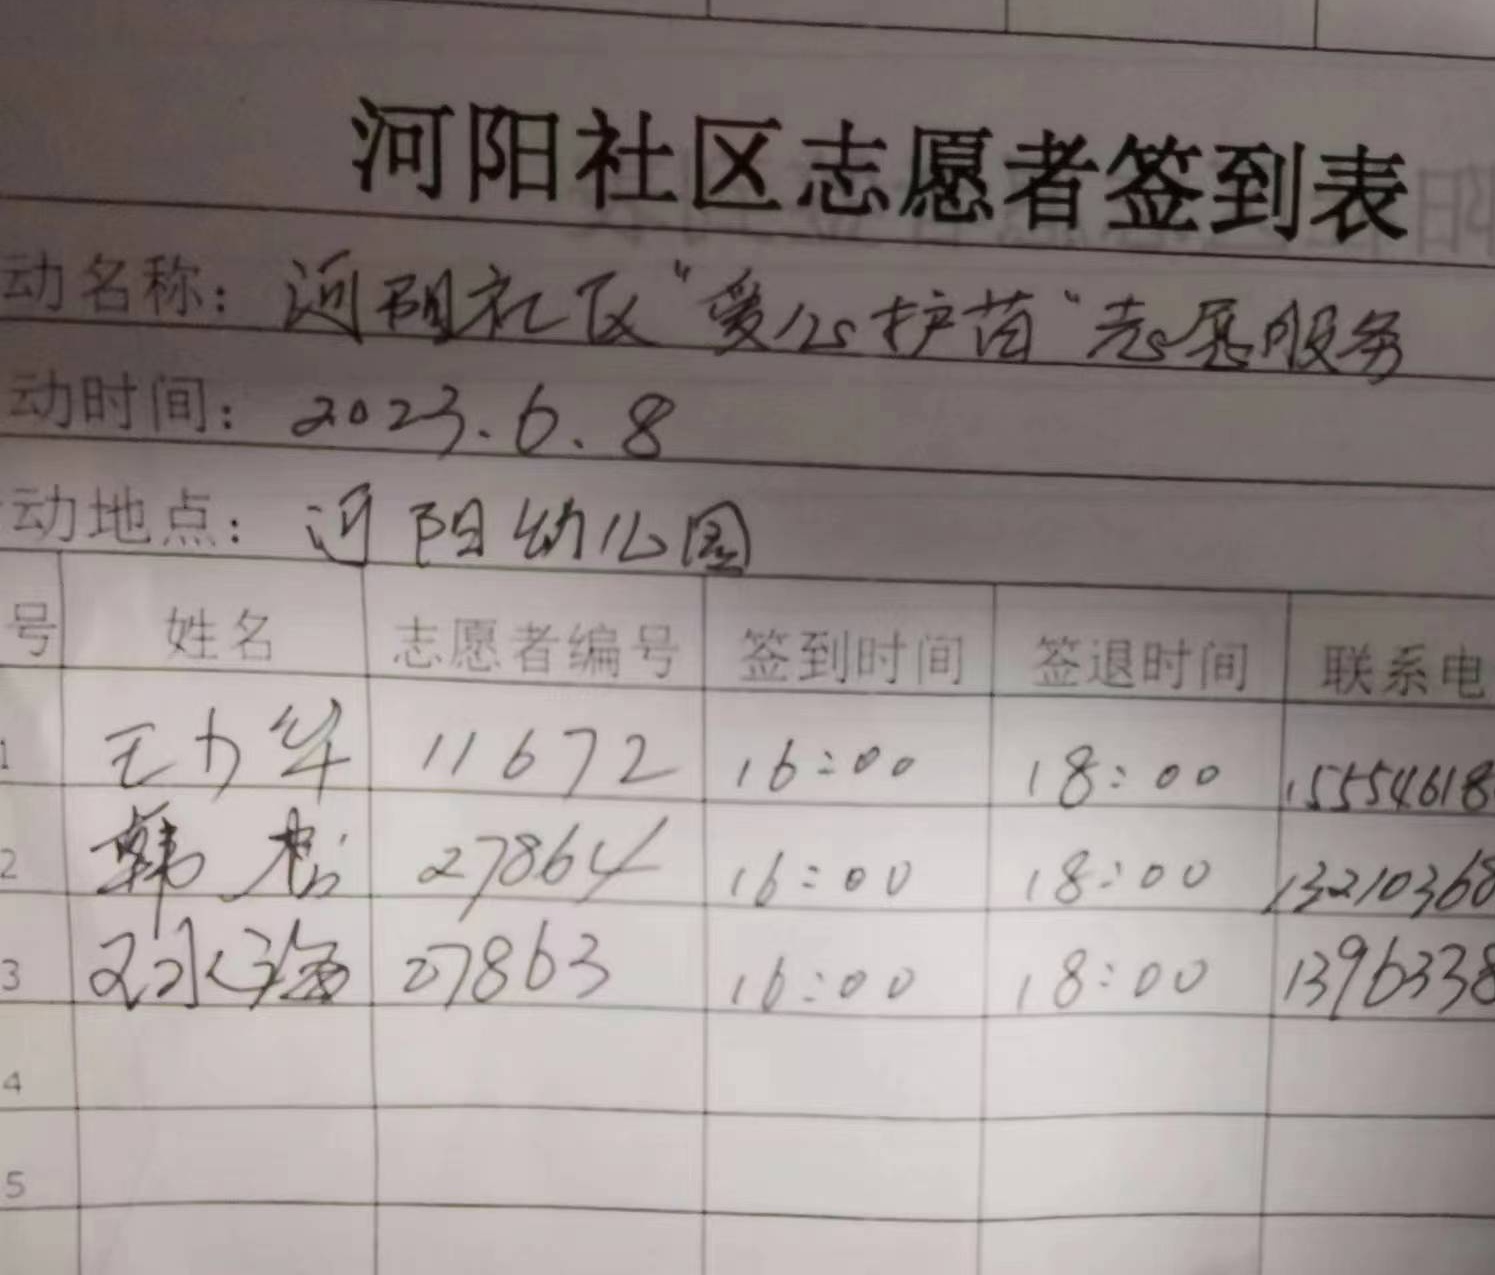 河阳社区志愿者签到表
动名称：河阳社区"爱心护苗"志愿服务
动时间：2023.6.8
动地点：河阳幼儿园
号 姓名 志愿者编号 签到时间 签退时间 联系电
1 王力华 11672 16:00 18:00 15554618
2 韩 27864 16:00 18:00 13210368
3 海 27863 16:00 18:00 1396338
4
5